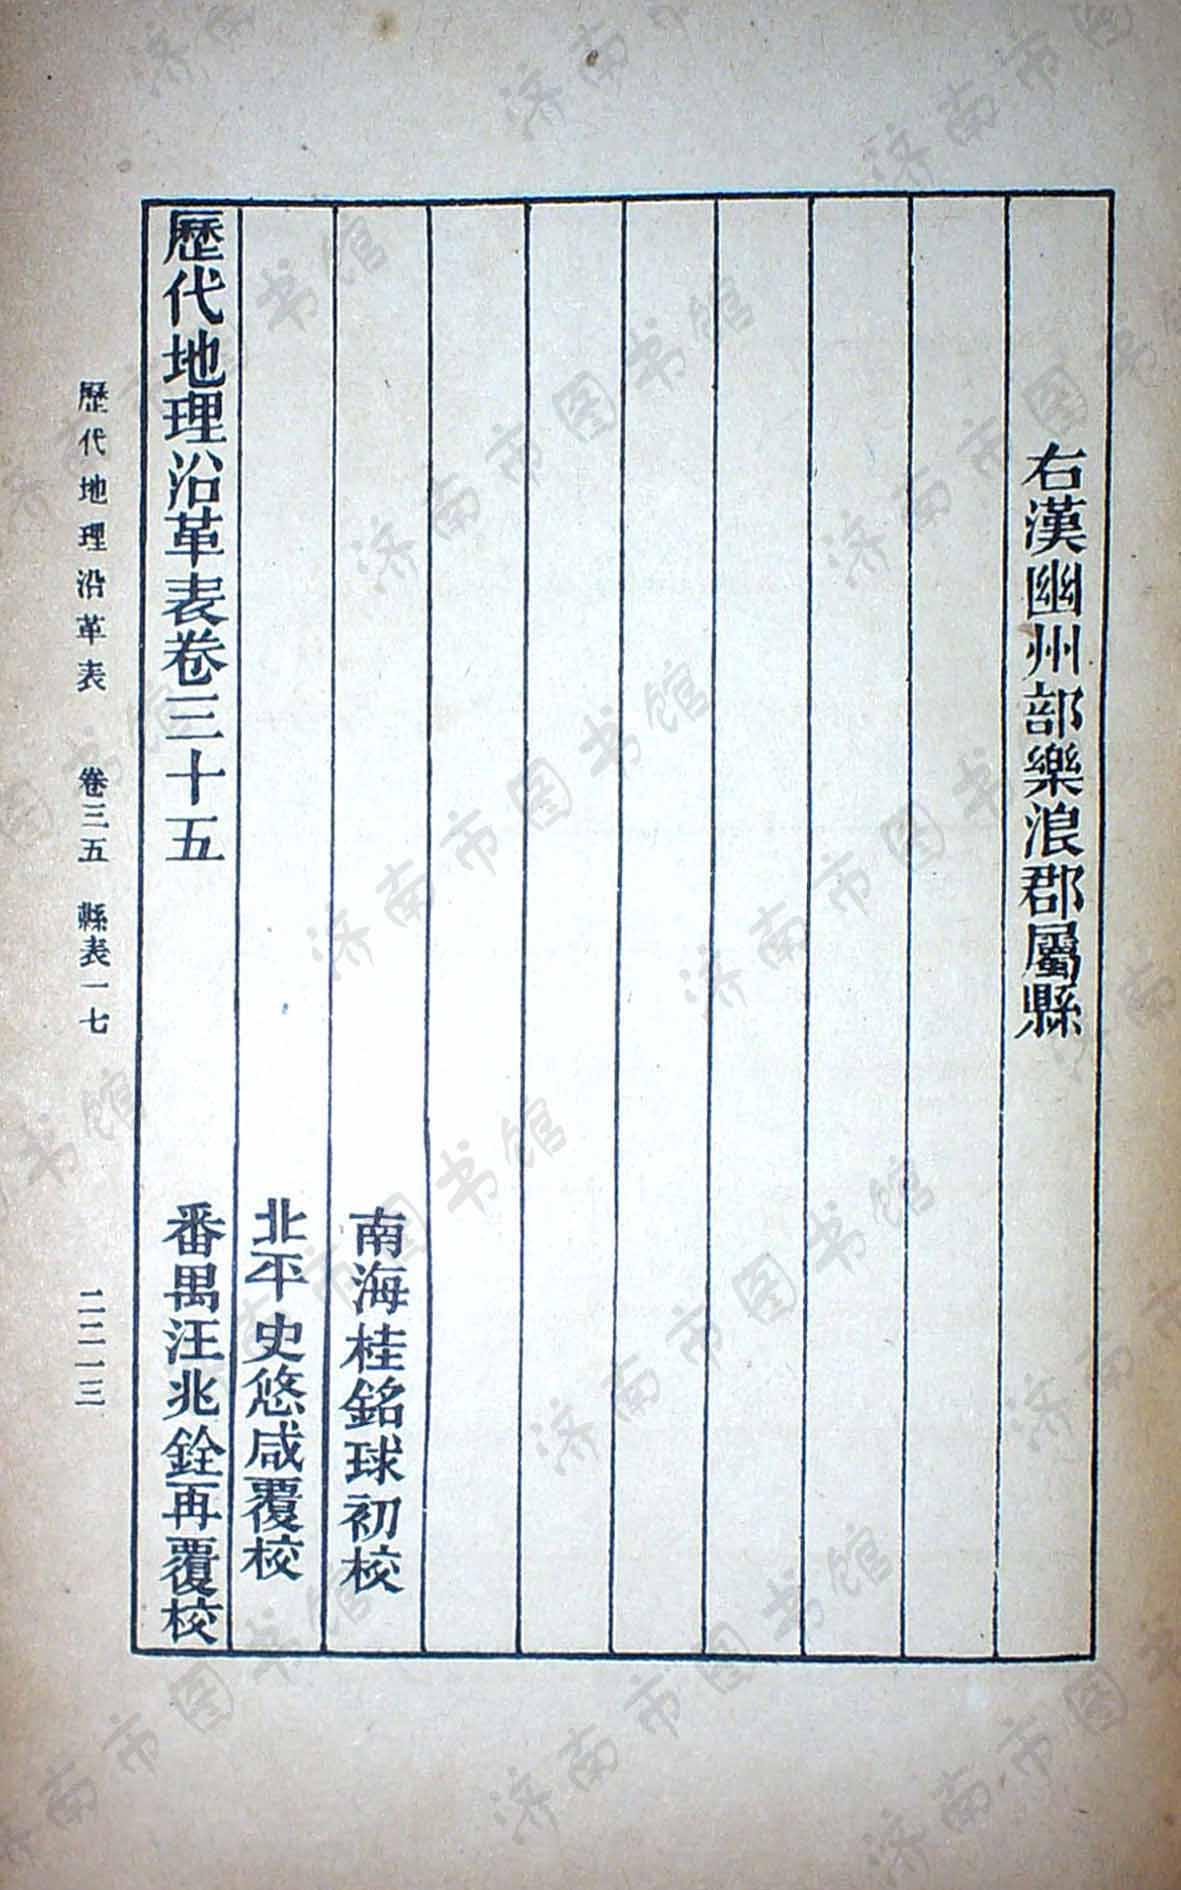 右漢幽州部樂浪郡屬縣
南海桂銘球初校
北平史悠咸覆校
歷代地理沿革表卷三十五 番禺汪兆銓再覆校
歷代地理沿革表 卷三五 縣表一七 二二一三
济南市图书馆